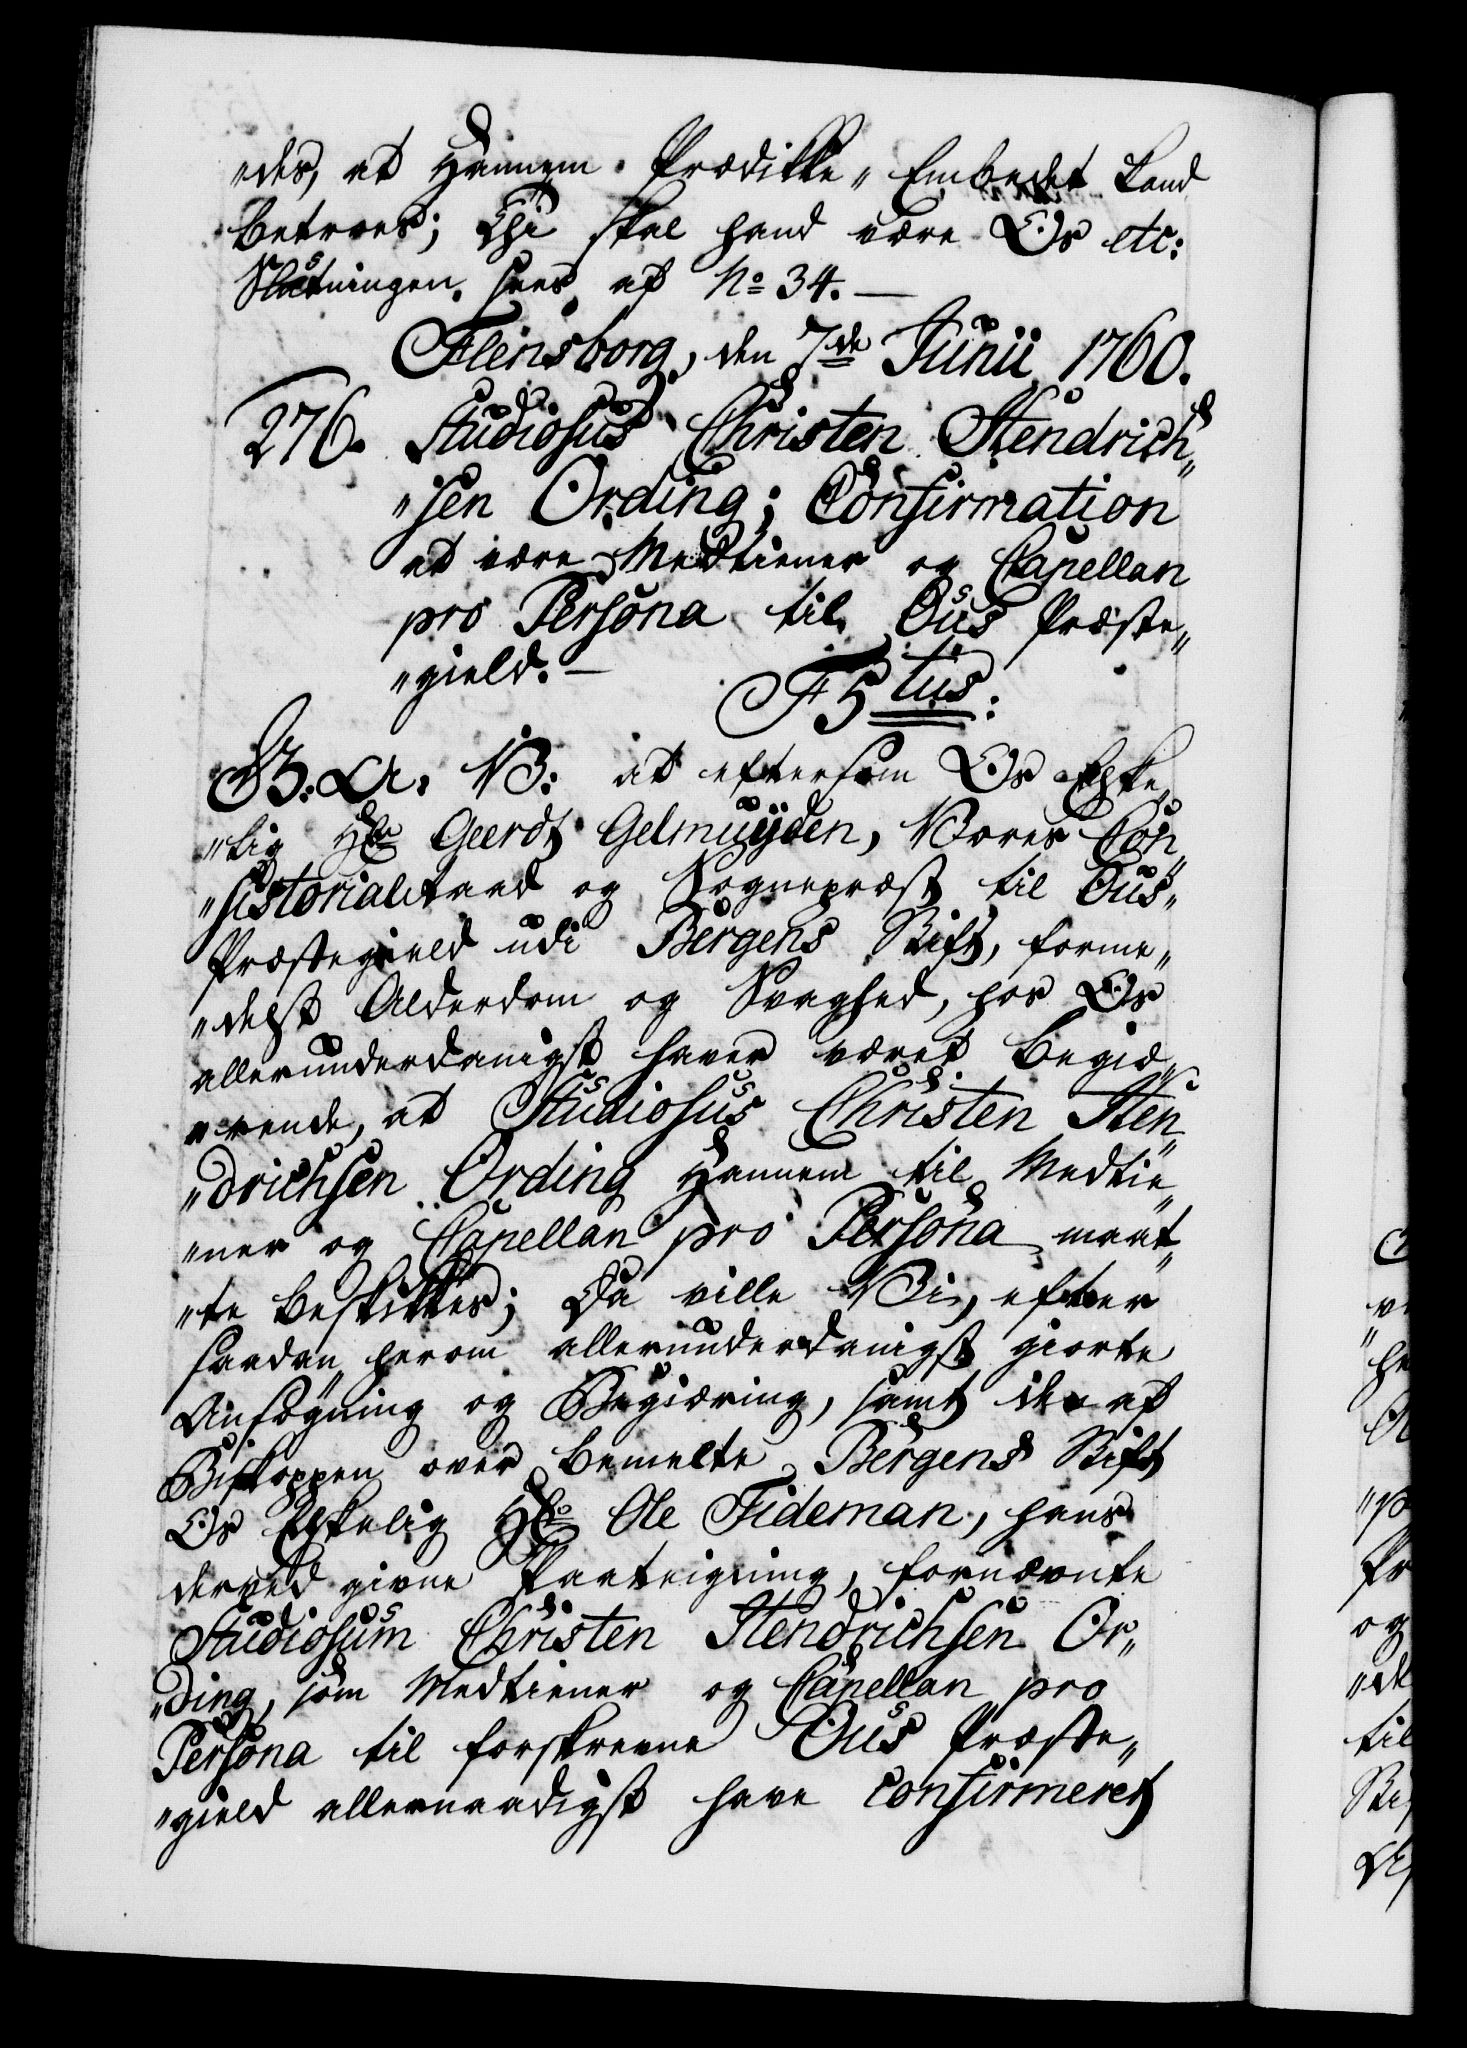 "des, at Hannem Prædikke„Embedet kand
betroes; Thi skal hand være Os etc:
Slutningen sees af No 34. —
Flensborg, den 7de Junii 1760.
276. Studiosus Christen Hendrich„
„sen Ording; Confirmation
at være Medtiener og Capellan
pro Persona til Ous Præste„
„gield. —
F5tus:
G. A. V: at eftersom Os Elske„
„lig Hr Geerdt Gelmuyden, Vores Con„
„sistorialraad og Sognepræst til Ous„
Præstegield udi Bergens Stift, forme„
„delst Alderdom og Svaghed, hos Os
allerunderdanigst haver været begiæ„
„rende, at Studiosus Christen Hen„
„drichsen Ording Hannem til Medtie„
„ner og Capellan pro Persona maat„
„te beskikkes; Da ville Vi, efter
saadan herom allerunderdanigst giorte
Ansøgning og Begiæring, samt den af
Biskoppen over bemelte Bergens Stift
Os Elskelig Hr Ole Tideman, hans
derved givne Paategning, fornævnte
Studiosum Christen Hendrichsen Or„
„ding, som Medtiener og Capellan pro
Persona til forskrevne Ous Præste„
„gield allernaadigst have confirmeret